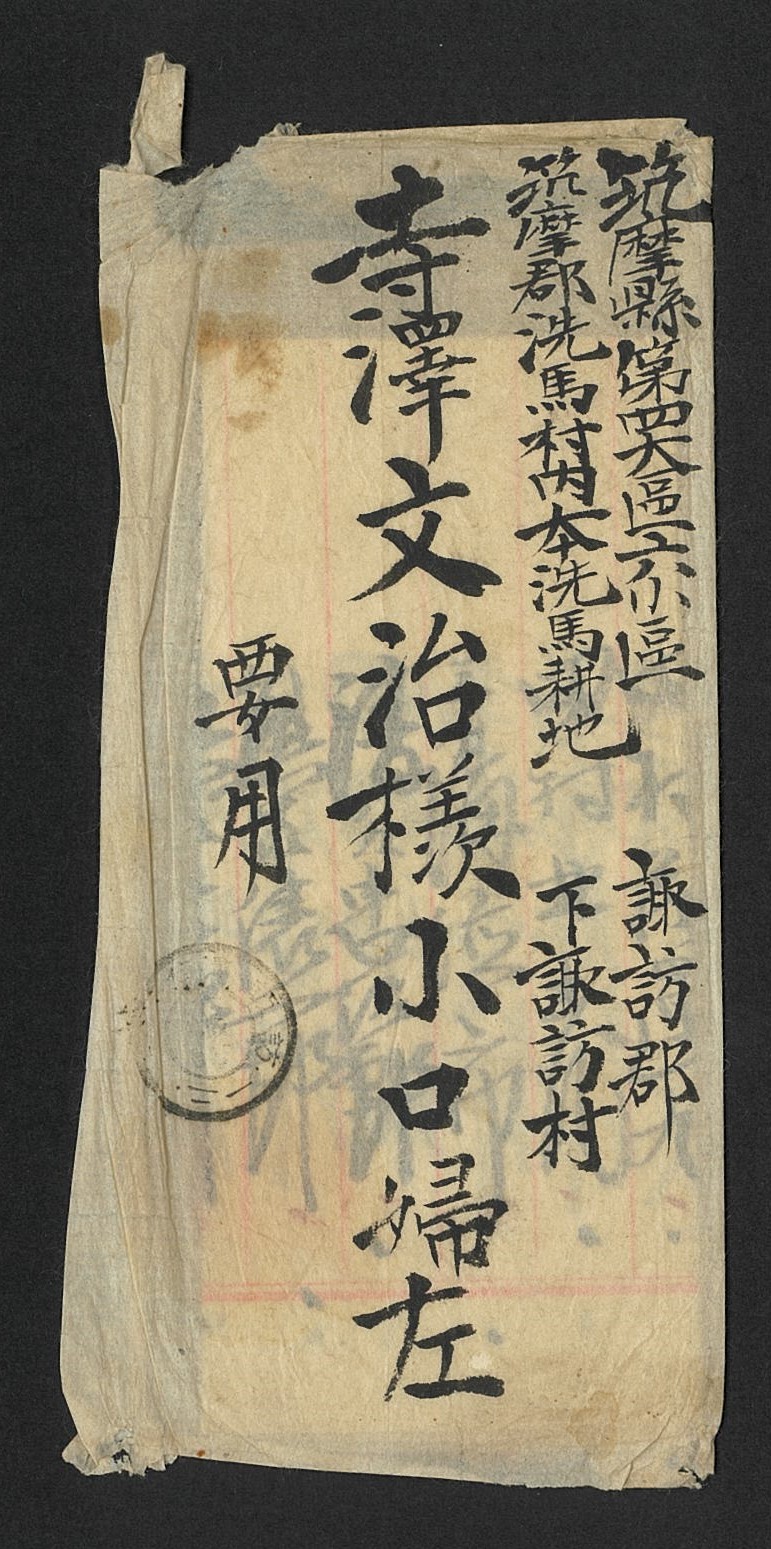 筑摩縣第四大區六小區
諏訪郡
筑摩郡洗馬村内本洗馬耕地
下諏訪村
寺澤文治様小口婦左
要用